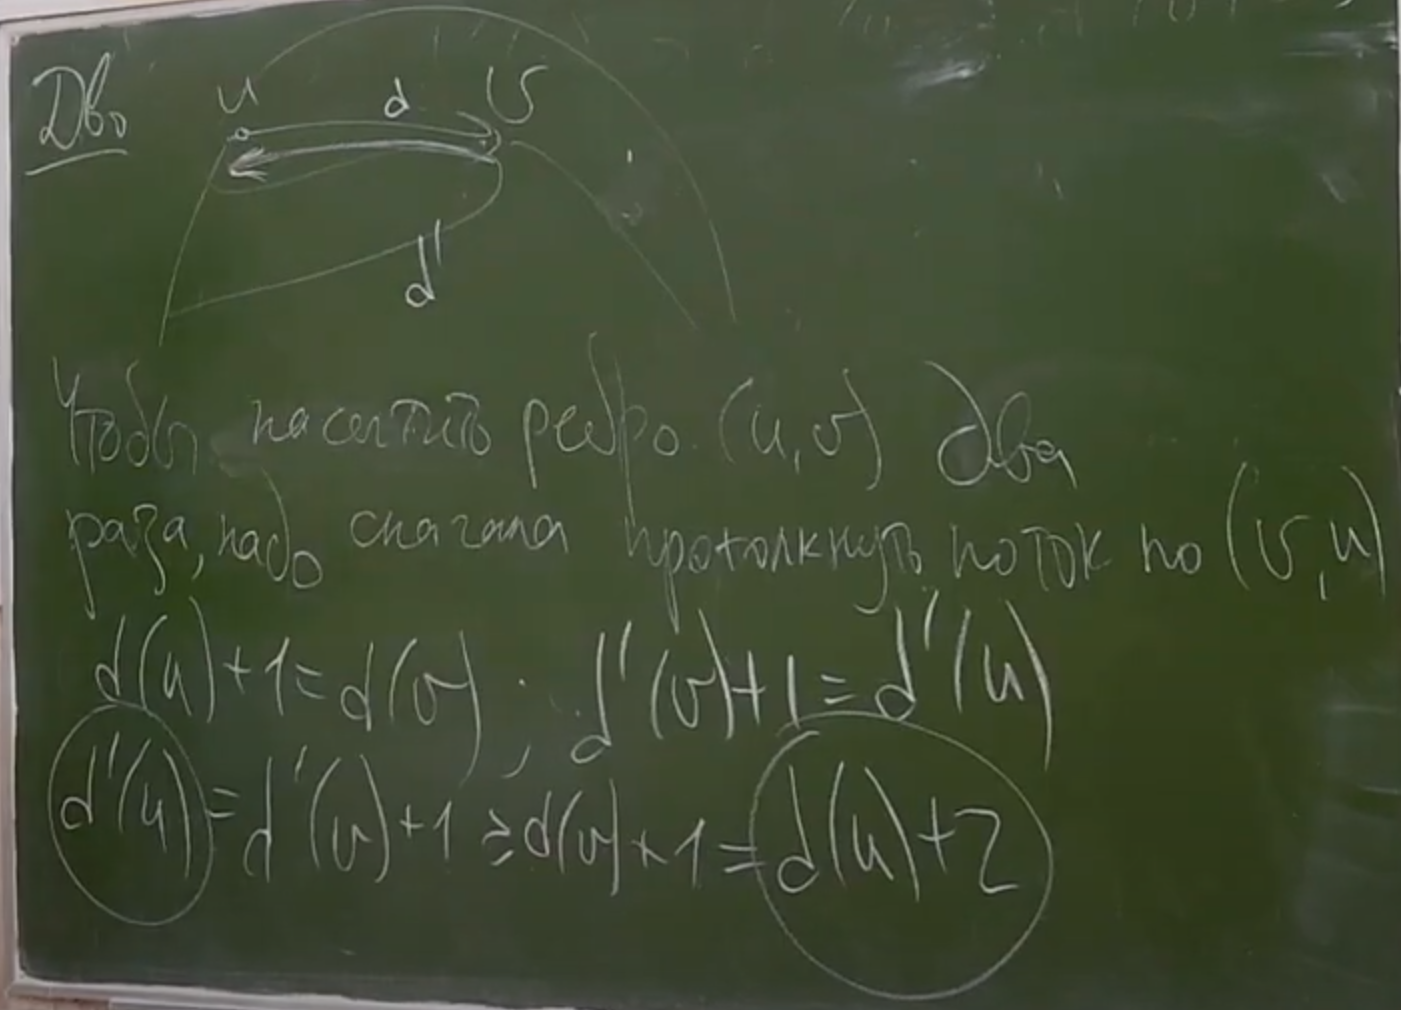 Дво
u d v
d'
Чтобы насытить ребро (u,v) два
раза, надо сначала протолкнуть поток по (v,u)
d(u)+1=d(v); d'(v)+1=d'(u)
d'(u)=d'(v)+1≥d(v)+1=d(u)+2